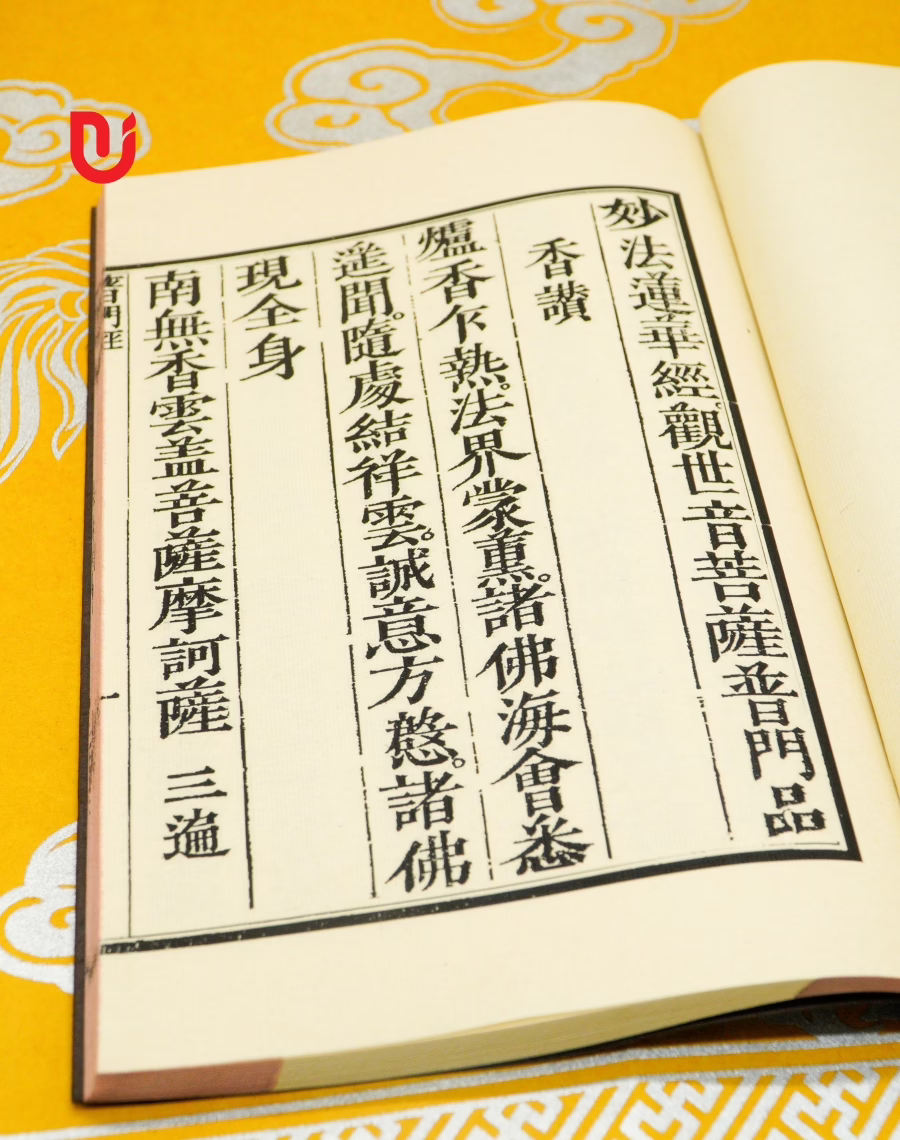 妙法蓮華經。觀世音菩薩普門品
香讃
爐香乍熱。法界蒙薫。諸佛海會悉
遥聞。隨處結祥雲。誠意方慇。諸佛
現全身
南無香雲盖菩薩摩訶薩 三遍
普門經
一